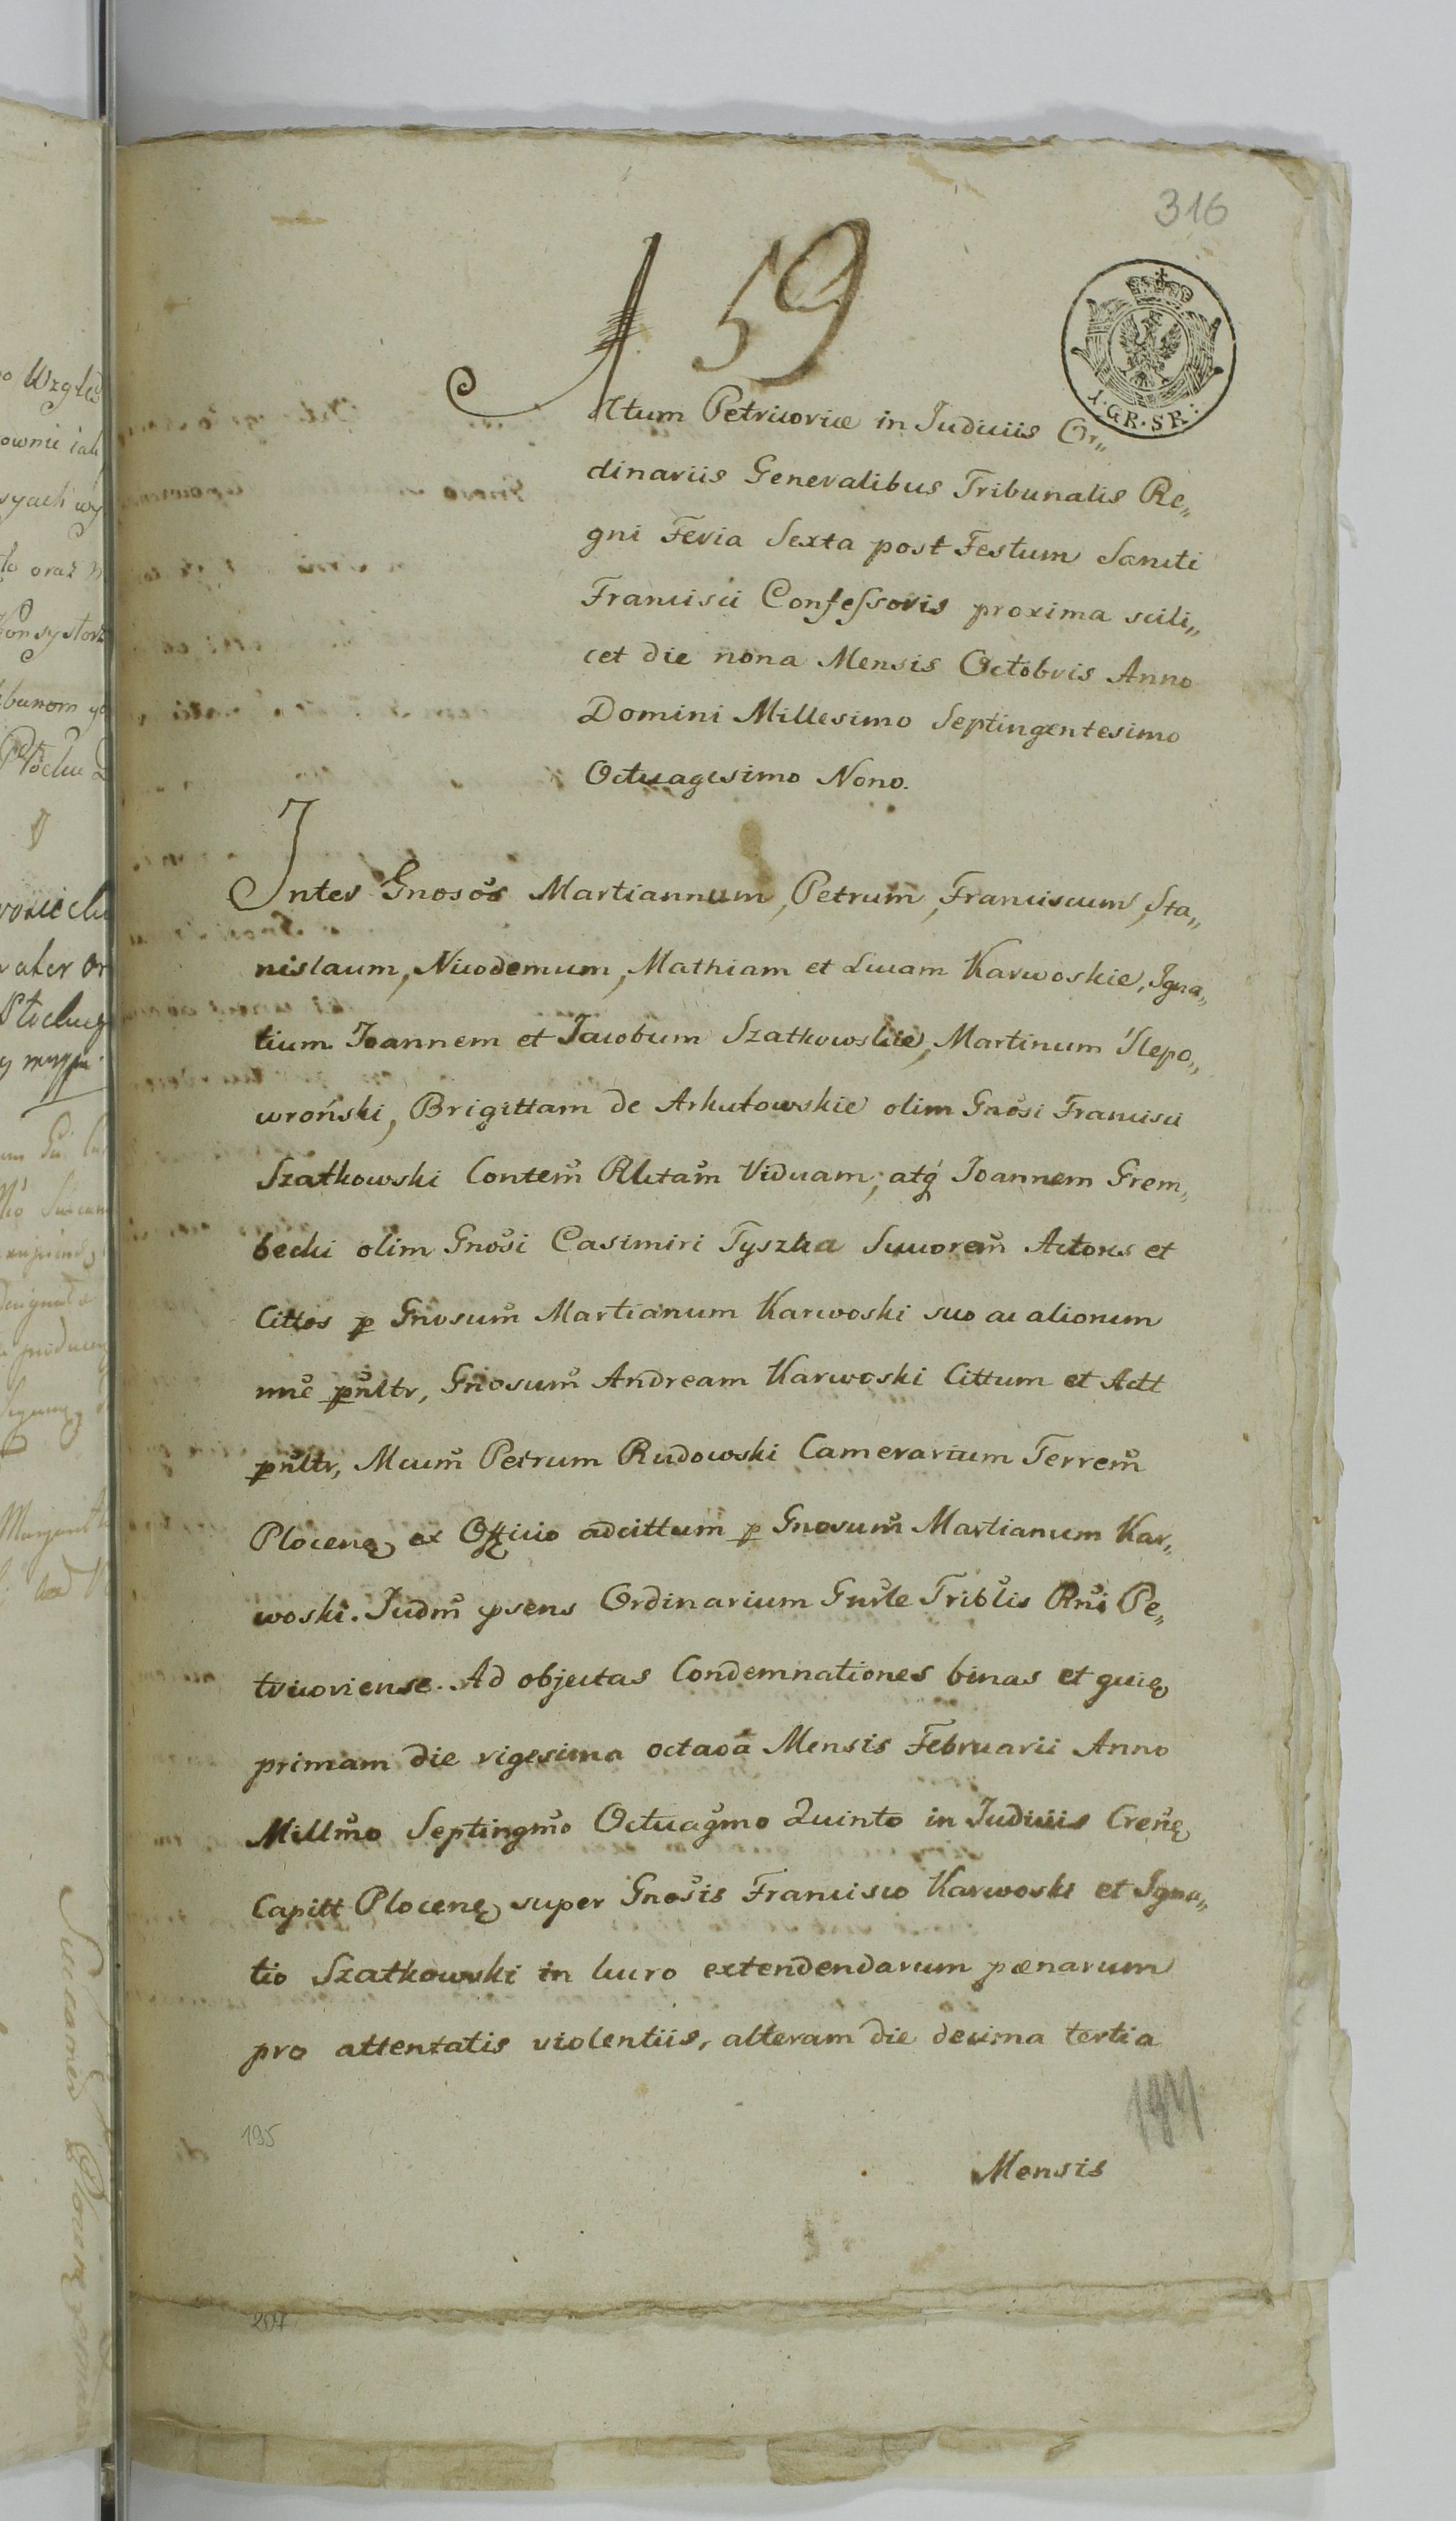 316
59
1·GR·SR·
Actum Petricoviæ in Judiciis Or„
dinariis Generalibus Tribunalis Re„
gni Feria Sexta post Festum Sancti
Francisci Confessoris proxima scili„
cet die nona Mensis Octobris Anno
Domini Millesimo Septingentesimo
Octuagesimo Nono.
Inter Gnosos Martiannum, Petrum, Franciscum, Sta„
nislaum, Nicodemum, Mathiam et Lucam Karwoskie, Igna„
tium Joannem et Jacobum Szatkowskie, Martinum Slepo„
wroński, Brigittam de Arkutowskie olim Gnosi Francisci
Szatkowski Contem Rlitam Viduam, atq Joannem Grem„
becki olim Gnosi Casimiri Tyszka Sucorem Actores et
Cittos p Gnosum Martianum Karwoski suo ac aliorum
nne pnltr, Gnosum Andream Karwoski Cittum et Actt
pnltr, Mcum Petrum Rudowski Camerarium Terrem
Plocenę ex Officio adcittum p Gnosum Martianum Kar„
woski. Judm psens Ordinarium Gnrle Triblis Rni Pe„
tricoviense. Ad objectas Condemnationes binas et quię
primam die vigesima octava Mensis Februarii Anno
Millmo Septingmo Octuagmo Quinto in Judiciis Crenę
Capitt Plocenę super Gnosis Francisco Karwoski et Igna„
tio Szatkowski in lucro extendendarum pænarum
pro attentatis violentiis, alteram die decima tertia
195
Mensis
207